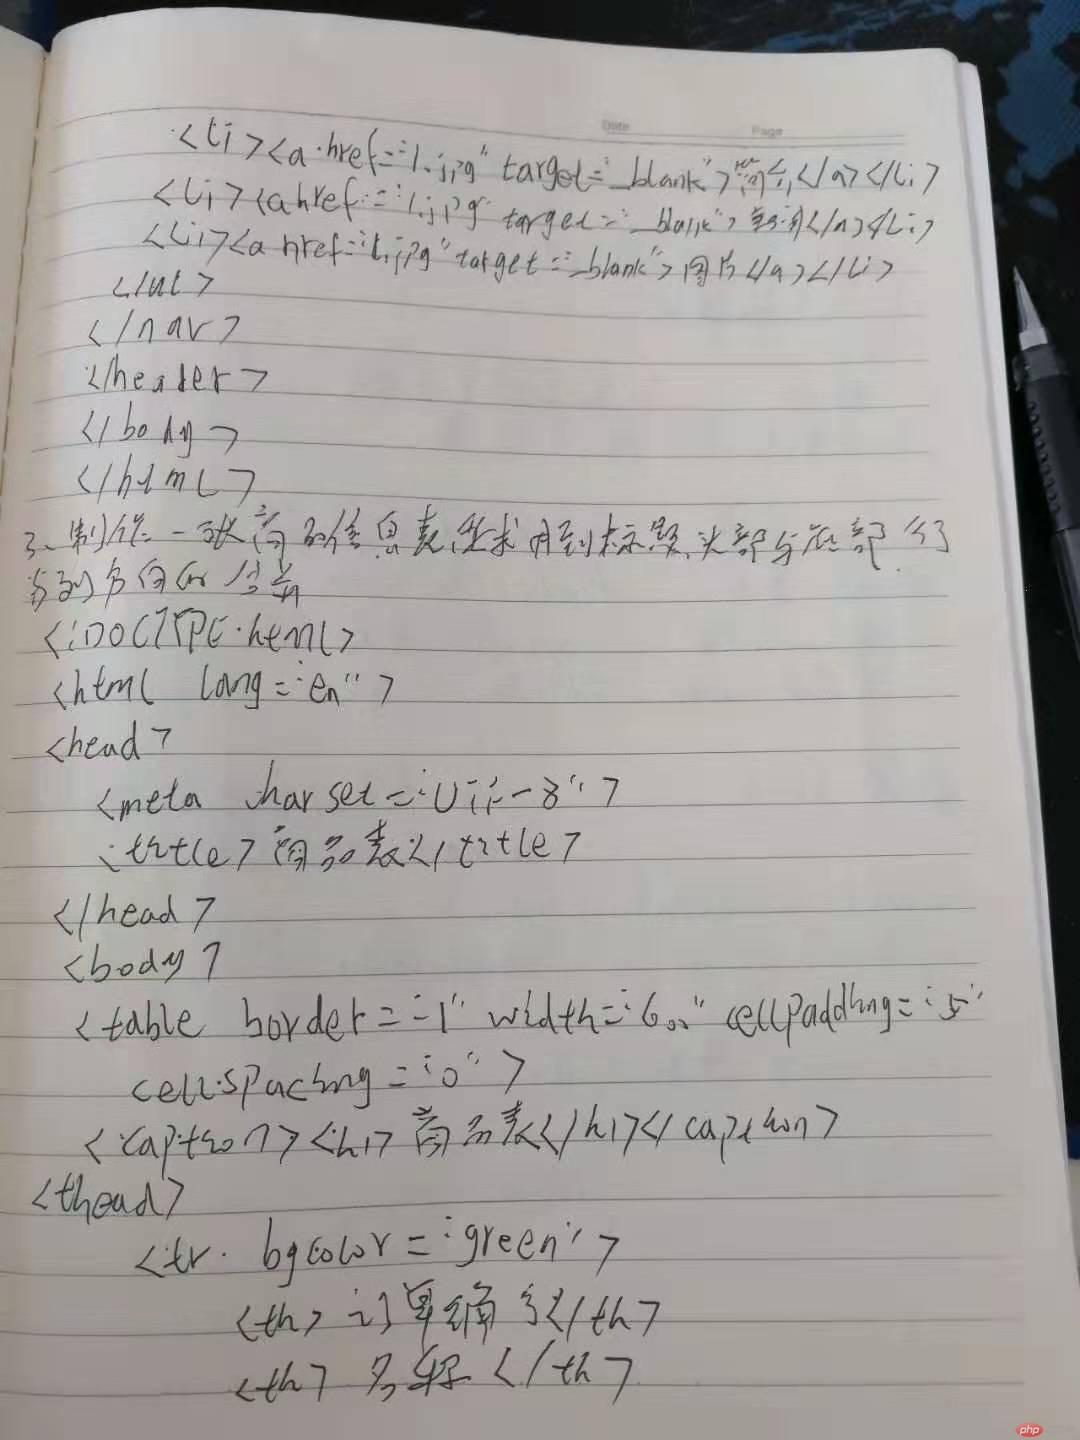 Date Page
<li><a href="1.jpg" target="_blank"></a></li>
<li><a href="1.jpg" target="_blank">新闻</a></li>
<li><a href="1.jpg" target="_blank">图片</a></li>
</ul>
</nav>
</header>
</body>
</html>
3、制作一张商品信息表,要求用到标题,头部与底部,行
与列方向的合并
<!DOCTYPE html>
<html lang="en">
<head>
<meta charset="Utf-8">
<title>商品表</title>
</head>
<body>
<table border="1" width="600" cellpadding="5"
cellspacing="0">
<caption><h1>商品表</h1></caption>
<thead>
<tr bgcolor="green">
<th>订单编号</th>
<th>名称</th>
php